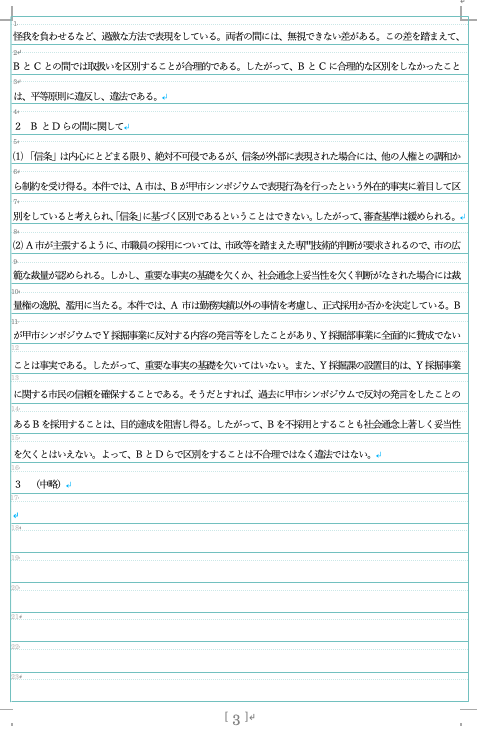 怪我を負わせるなど、過激な方法で表現をしている。両者の間には、無視できない差がある。この差を踏まえて、
BとCとの間では取扱いを区別することが合理的である。したがって、BとCに合理的な区別をしなかったこと
は、平等原則に違反し、違法である。
2　BとDらの間に関して
(1)「信条」は内心にとどまる限り、絶対不可侵であるが、信条が外部に表現された場合には、他の人権との調和か
ら制約を受け得る。本件では、A市は、Bが甲市シンポジウムで表現行為を行ったという外在的事実に着目して区
別をしていると考えられ、「信条」に基づく区別であるということはできない。したがって、審査基準は緩められる。
(2) A市が主張するように、市職員の採用については、市政等を踏まえた専門技術的判断が要求されるので、市の広
範な裁量が認められる。しかし、重要な事実の基礎を欠くか、社会通念上妥当性を欠く判断がなされた場合には裁
量権の逸脱、濫用に当たる。本件では、A 市は勤務実績以外の事情を考慮し、正式採用か否かを決定している。B
が甲市シンポジウムでY採掘事業に反対する内容の発言等をしたことがあり、Y採掘部事業に全面的に賛成でない
ことは事実である。したがって、重要な事実の基礎を欠いてはいない。また、Y採掘課の設置目的は、Y採掘事業
に関する市民の信頼を確保することである。そうだとすれば、過去に甲市シンポジウムで反対の発言をしたことの
あるBを採用することは、目的達成を阻害し得る。したがって、Bを不採用とすることも社会通念上著しく妥当性
を欠くとはいえない。よって、BとDらで区別をすることは不合理ではなく違法ではない。
3　（中略）
[ 3 ]